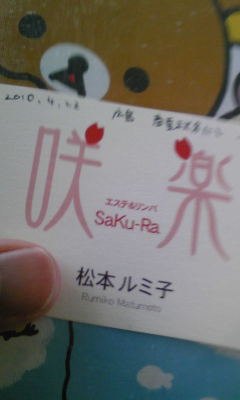 2010.4.23
広島
咲 楽
エステ&リンパ
SaKu-Ra
松本ルミ子
Rumiko Matumoto